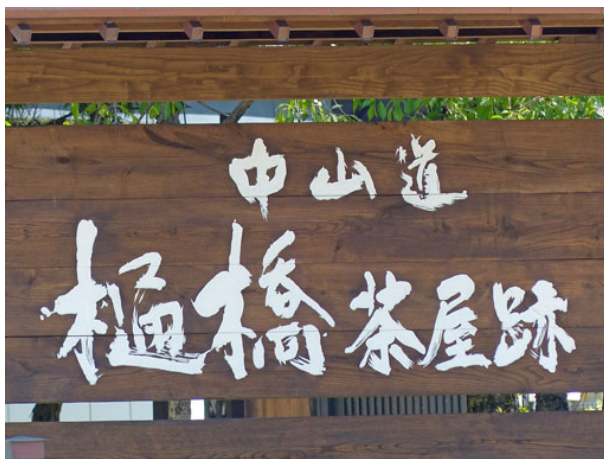 中山道
樋橋茶屋跡